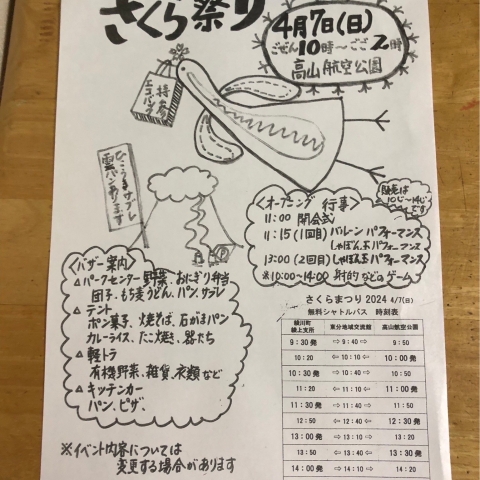 さくら祭り
4月7日(日)
ごぜん10時～ごご2時
高山航空公園
持参
エコバッグ
ひこうきサブレ
雲パンあります
販売は
10じ～14じ
です
〈オープニング 行事〉
11:00 開会式
11:15(1回目)バルーンパフォーマンス
しゃぼん玉パフォーマンス
13:00(2回目)しゃぼん玉パフォーマンス
※10:00～14:00 射的などのゲーム
〈バザー案内〉
△パークセンター 野菜、おにぎり弁当
団子、もち麦うどん、パン、サブレ
△テント
ポン菓子、焼そば、石がまパン
カレーライス、たこ焼き、器たち
△軽トラ
有機野菜、雑貨、衣類など
△キッチンカー
パン、ピザ、
※イベント内容については
変更する場合があります
さくらまつり 2024 4/7(日)
無料シャトルバス 時刻表
綾川町綾上支所 東分地域交流館 高山航空公園
9:30発 ⇨ 9:40 ⇨ 9:50
10:20 ⇦ 10:10 ⇦ 10:00発
10:30発 ⇨ 10:40 ⇨ 10:50
11:20 ⇦ 11:10 ⇦ 11:00発
11:30発 ⇨ 11:40 ⇨ 11:50
12:50 ⇦ 12:40 ⇦ 12:30発
13:00発 ⇨ 13:10 ⇨ 13:20
13:50 ⇦ 13:40 ⇦ 13:30発
14:00発 ⇨ 14:10 ⇨ 14:20